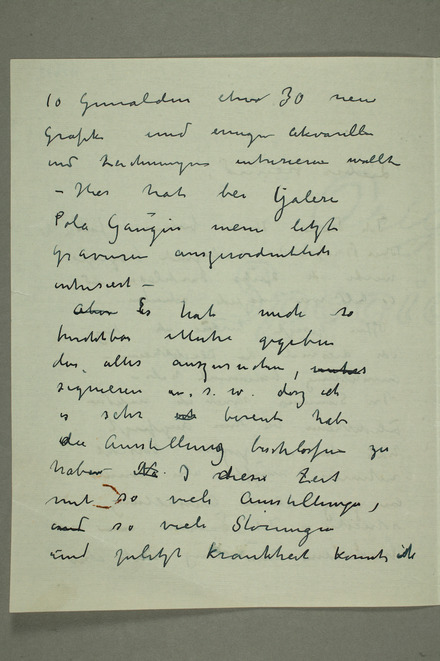 10 Gemälden etwa 30 neue
Grafik und einigen Akvarelle
und Zeichnungen interessieren wollte
– Hier hat bei Galeri
Pola Gaugin meine letzt
Gravuren ausserordentlich
interessiert –
Es hat mich so
furchtbar Mühe gegeben
das alles auszusuchen,
signieren u. s. w. dass ich
es sehr bereut habe
die Ausstellung beschlossen zu
haben. I diese Zeit
mit so viele Ausstellungen,
und so viele Störungen
und zuletzt Krankheit konnte ich